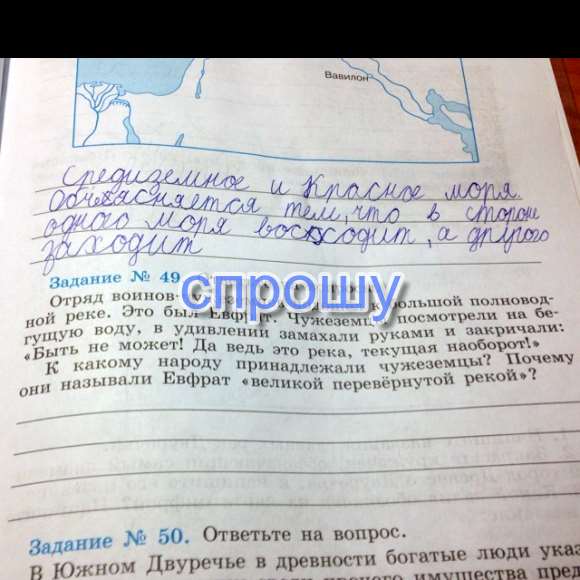 Вавилон
Средиземное и Красное моря.
Объясняется тем, что в стороне
одного моря восходит, а другого
заходит
Задание № 49.
спрошу
Отряд воинов- большой полновод-
ной реке. Это был Евфрат. Чужеземцы посмотрели на бе-
гущую воду, в удивлении замахали руками и закричали:
«Быть не может! Да ведь это река, текущая наоборот!»
К какому народу принадлежали чужеземцы? Почему
они называли Евфрат «великой перевёрнутой рекой»?
Задание № 50. Ответьте на вопрос.
В Южном Двуречье в древности богатые люди указ
имущества пред